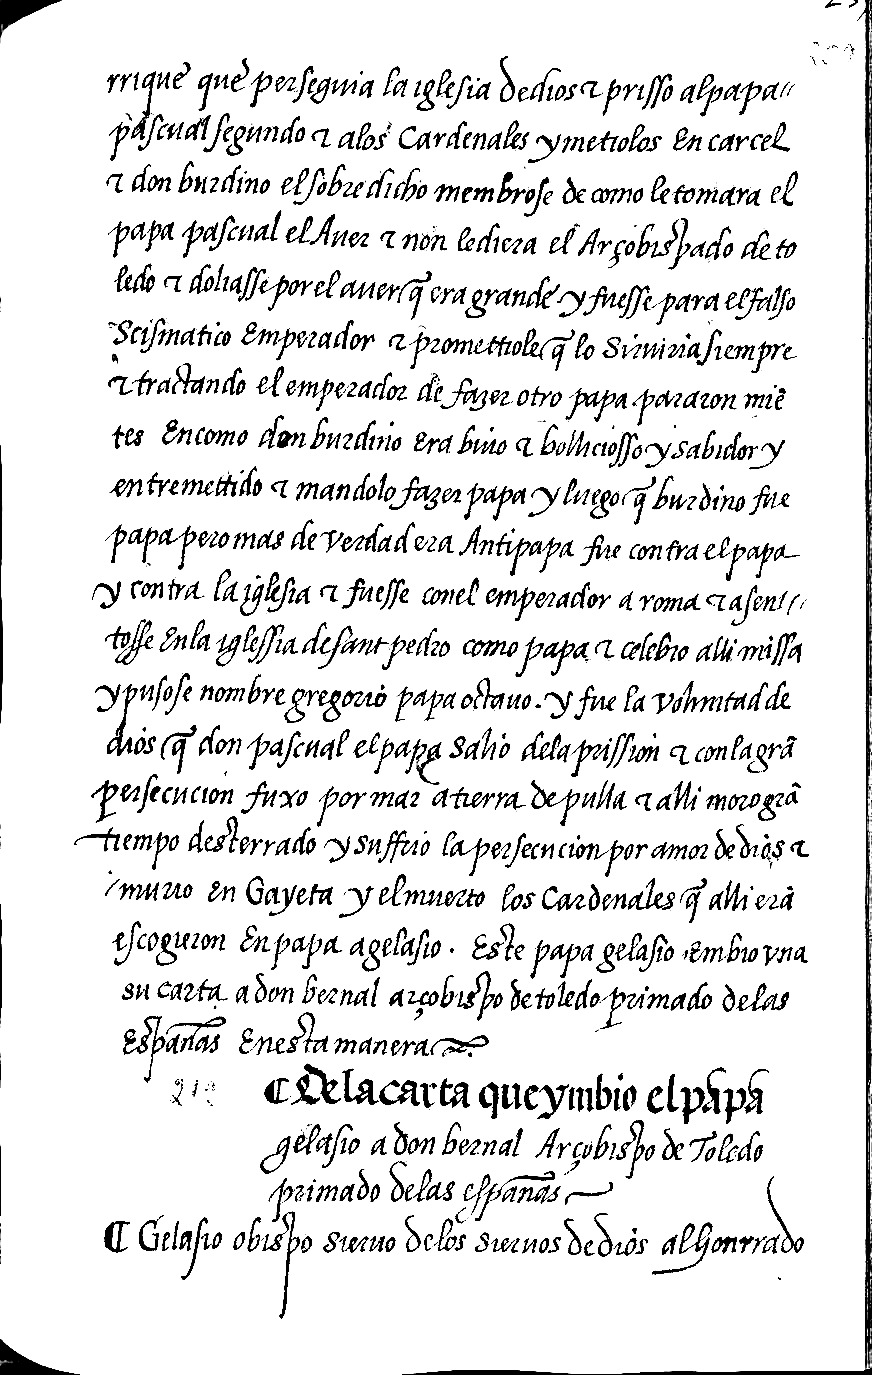 rrique que perseguia la iglesia de dios ⁊ prisso al papa
pascual segundo ⁊ alos Cardenales y metiolos En carcel
⁊ don burdino el sobredicho membrose de como le tomara el
papa pascual el Auer ⁊ non le diera el Arçobispado de to
ledo ⁊ doliasse por el auer q̃ era grande y fuesse para el falso
Scismatico Emperador ⁊ promettiole q̃ lo Siruiria siempre
⁊ tractando el emperador de fazer otro papa pararon miẽ
tes En como don burdino Era biuo ⁊ bolliciosso y sabidor y
entremettido ⁊ mandolo fazer papa y luego q̃ burdino fue
papa pero mas de Verdad era Antipapa fue contra el papa
y contra la iglesia ⁊ fuesse con el emperador a roma ⁊ asen
tosse En la iglessia de sant pedro como papa ⁊ celebro alli missa
y pusose nombre gregorio papa octauo. y fue la voluntad de
dios q̃ don pascual el papa salio dela prission ⁊ con la grã
persecucion fuxo por mar a tierra de pulla ⁊ alli moro grã
tiempo desterrado y suffrio la persecucion por amor de dios ⁊
murio en Gayeta y el muerto los Cardenales q̃ alli erã
escogieron En papa a gelasio. Este papa gelasio embio vna
su carta a don bernal arçobispo de toledo primado delas
Españas En esta manera
212 ¶ De la carta que ymbio el papa
gelasio a don bernal Arçobispo de Toledo
primado delas españas
¶ Gelasio obispo sieruo delos sieruos de dios al honrrado